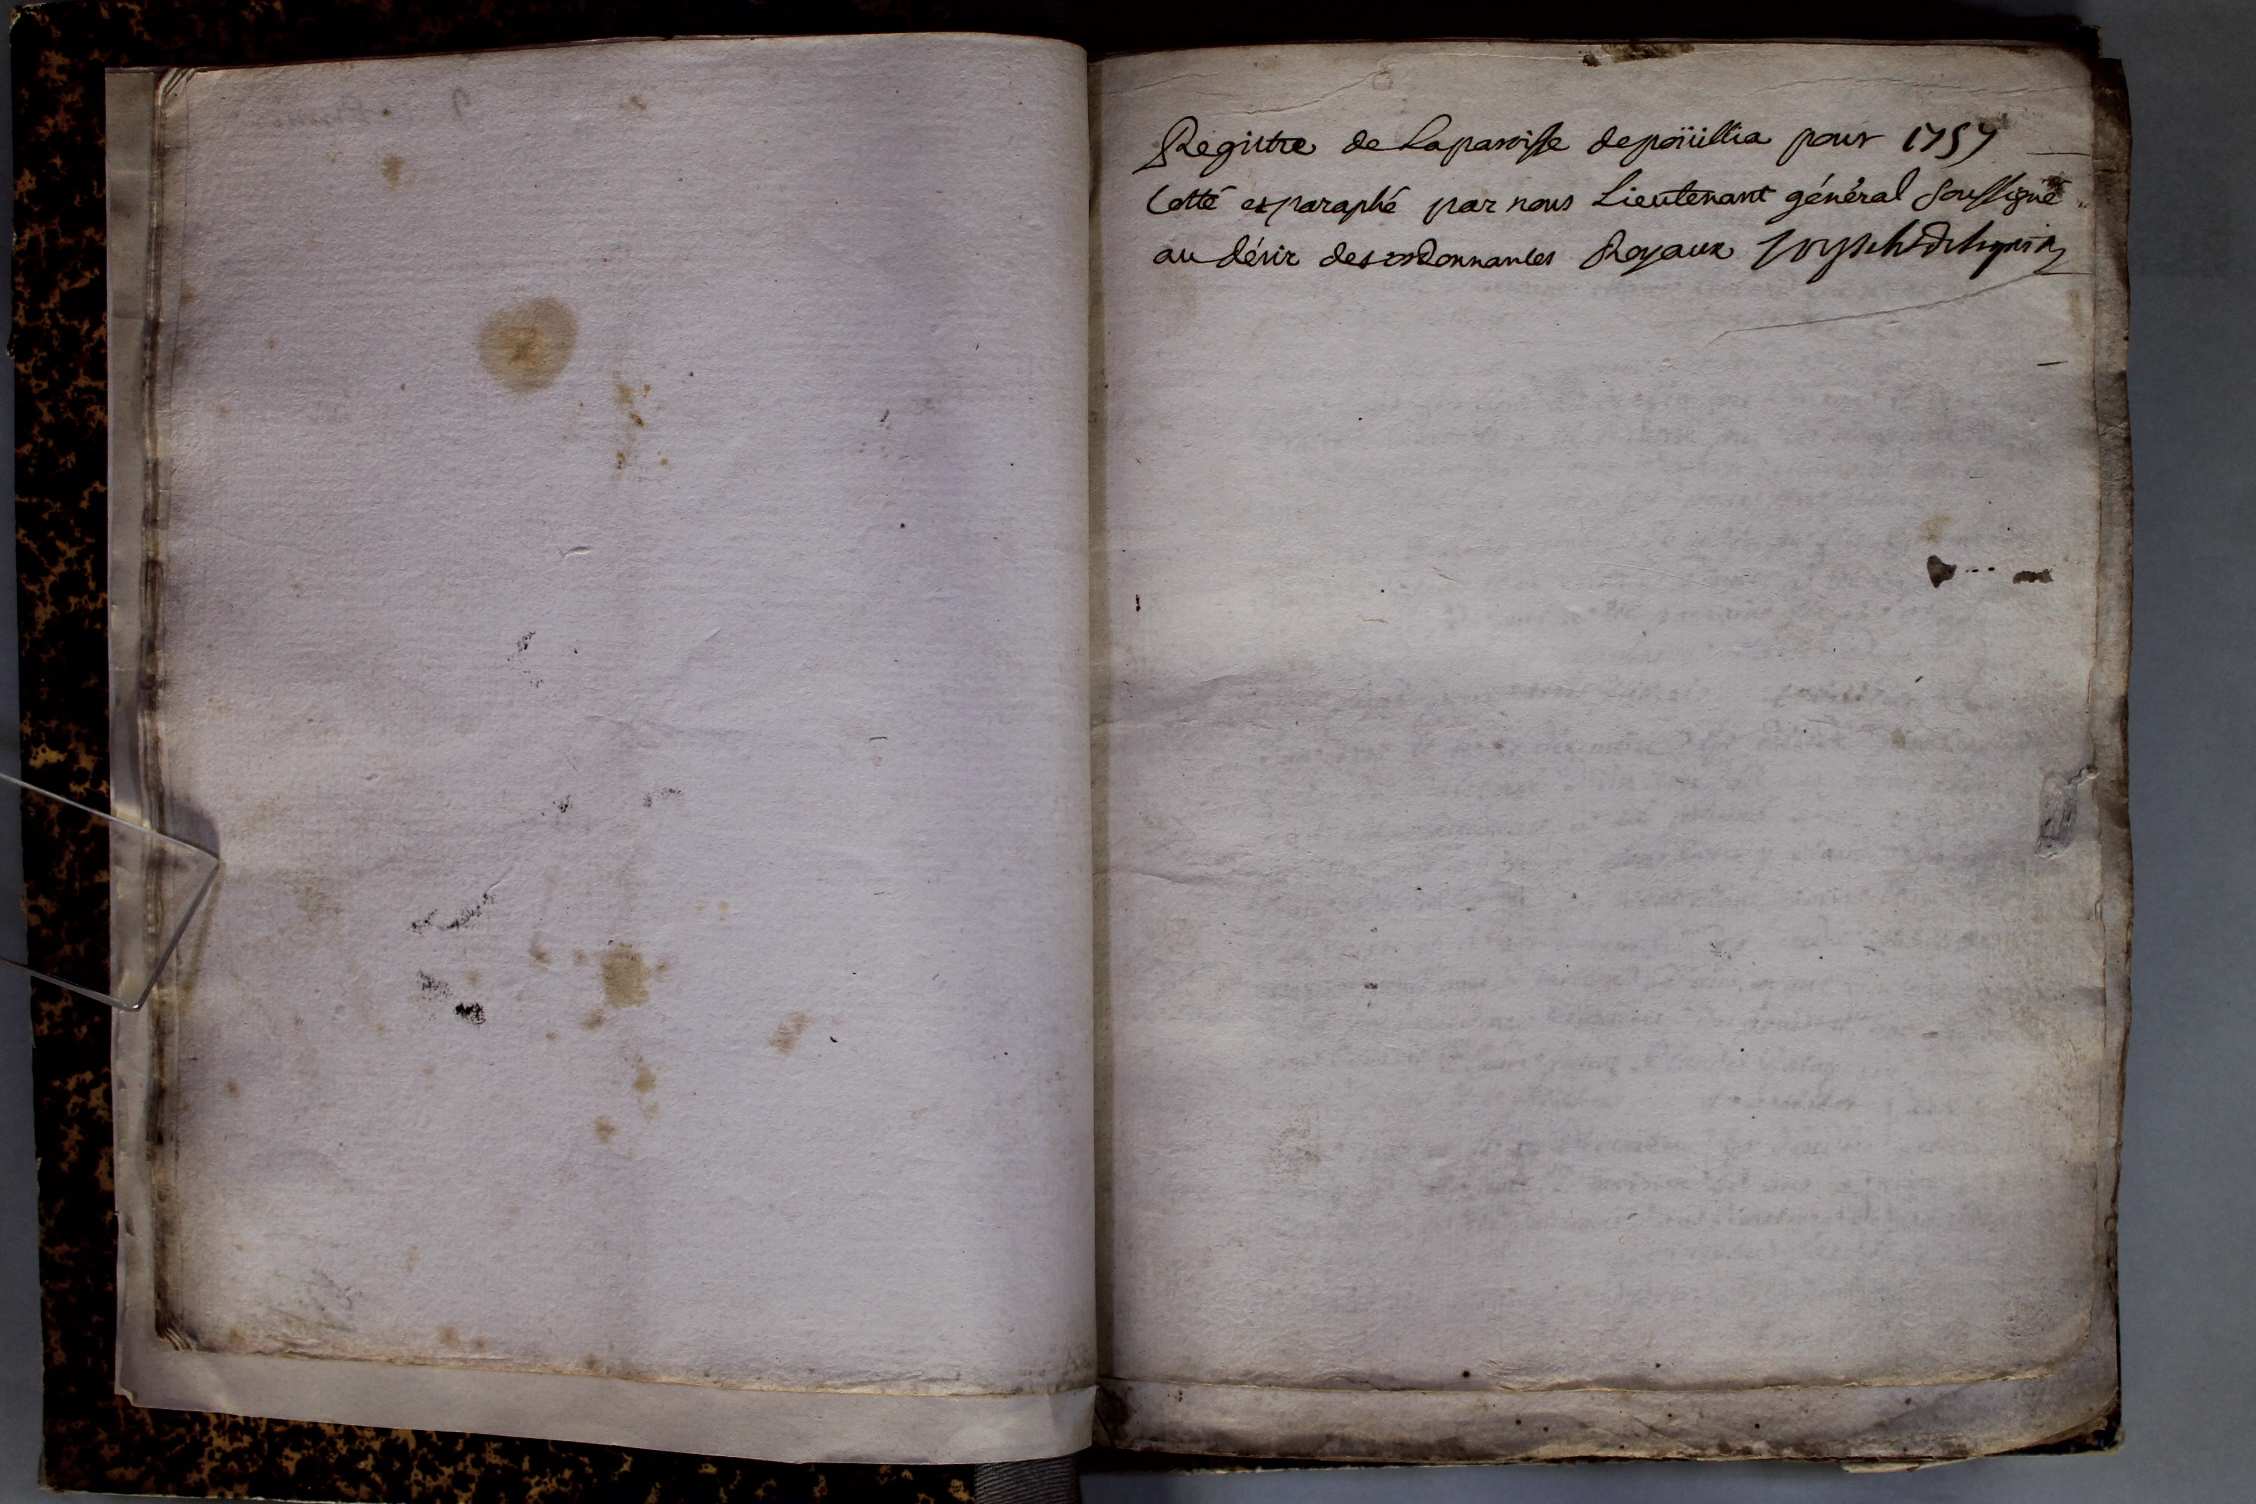 Registre de Laparoisse depoüillia pour 1757
Cotté et paraphé par nous Lieutenant général soussigné
au désir des ordonnances Royaux